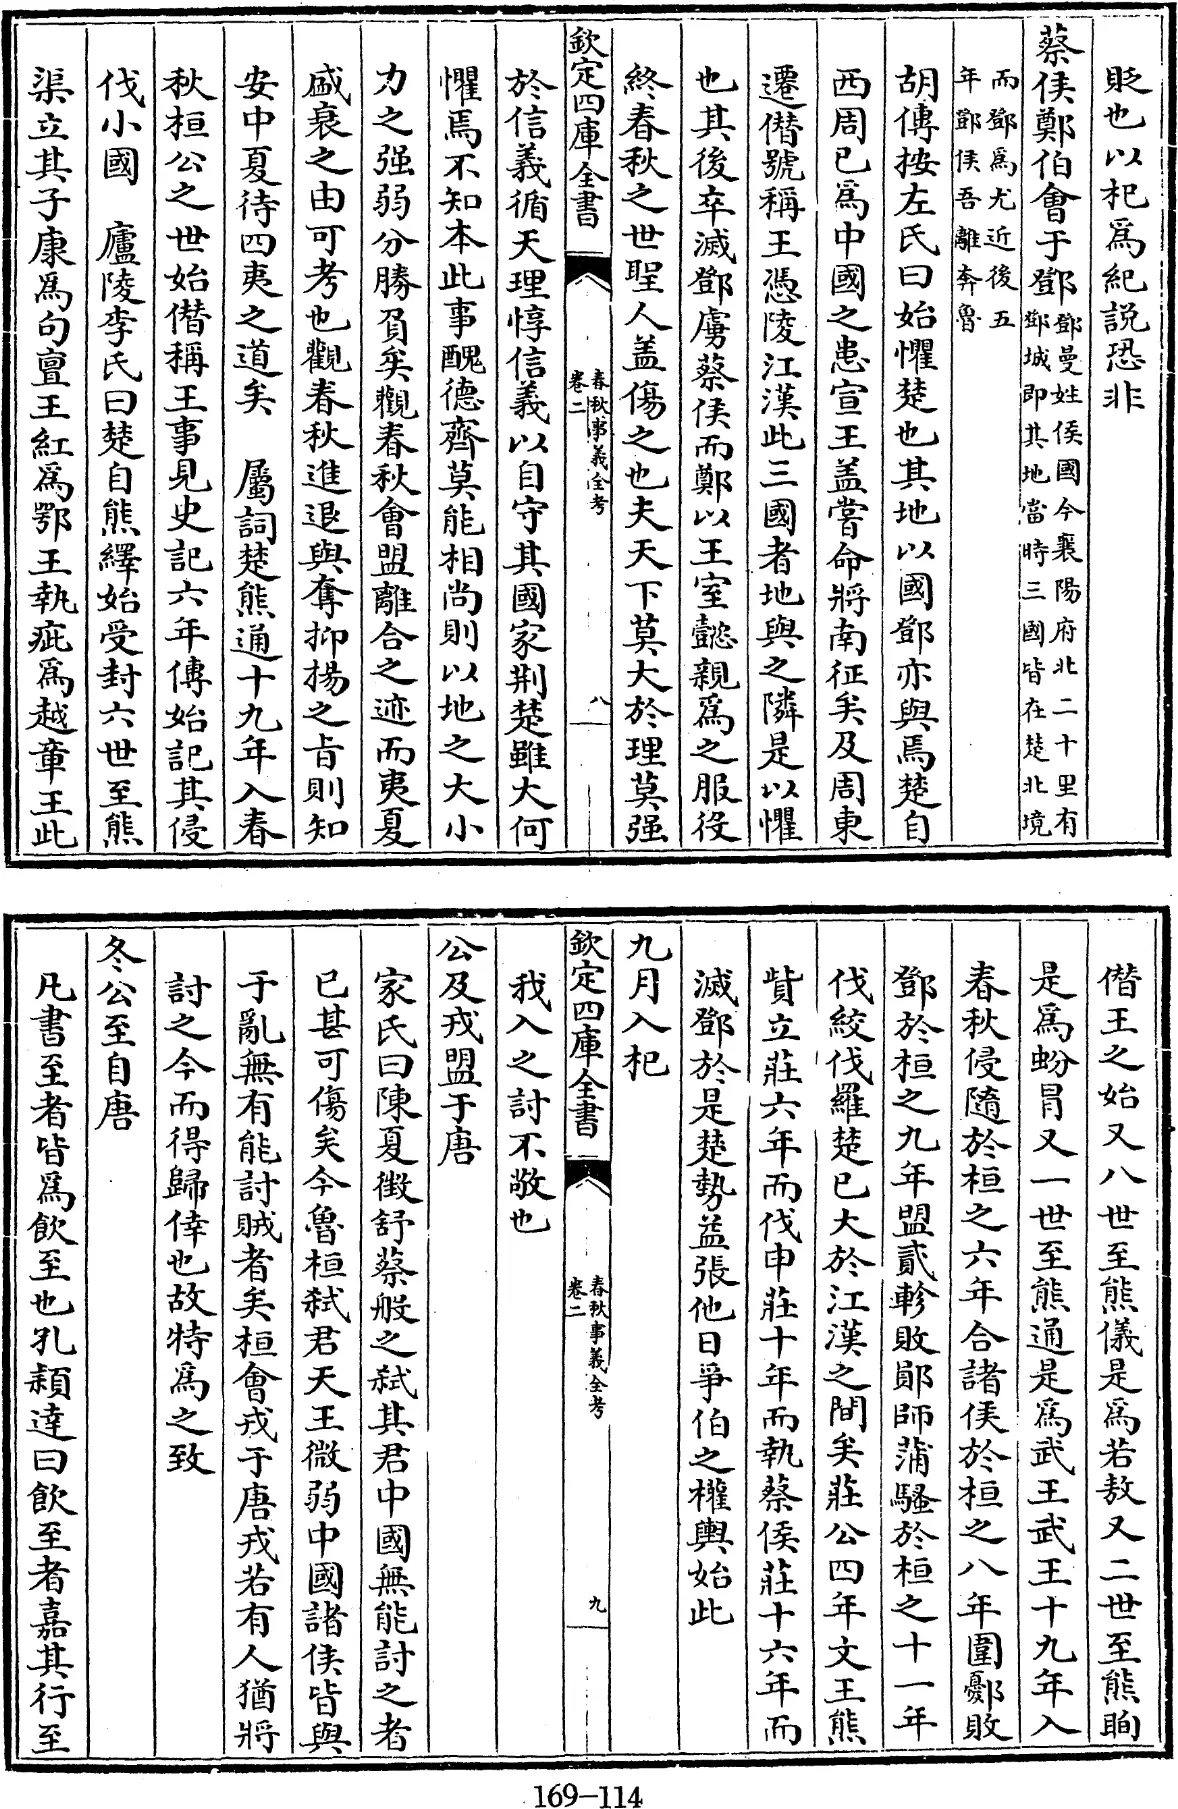 貶也以杞為紀說恐非
蔡侯鄭伯會于鄧鄧曼姓侯國今襄陽府北二十里有
鄧城即其地當時三國皆在楚北境
而鄧為尤近後五
年鄧侯吾離奔魯
胡傳按左氏曰始懼楚也其地以國鄧亦與焉楚自
西周已為中國之患宣王盖嘗命將南征矣及周東
遷僭號稱王憑陵江漢此三國者地與之隣是以懼
也其後卒滅鄧虜蔡侯而鄭以王室懿親為之服役
終春秋之世聖人盖傷之也夫天下莫大於理莫强
欽定四庫全書
春秋事義全考
卷二
八
於信義循天理惇信義以自守其國家荆楚雖大何
懼焉不知本此事醜德齊莫能相尚則以地之大小
力之强弱分勝負矣觀春秋會盟離合之迹而夷夏
盛衰之由可考也觀春秋進退與奪抑揚之旨則知
安中夏待四夷之道矣　屬詞楚熊通十九年入春
秋桓公之世始僭稱王事見史記六年傳始記其侵
伐小國　廬陵李氏曰楚自熊繹始受封六世至熊
渠立其子康為句亶王紅為鄂王執疵為越章王此
僭王之始又八世至熊儀是為若敖又二世至熊眴
是為蚡冒又一世至熊通是為武王武王十九年入
春秋侵隨於桓之六年合諸侯於桓之八年圍鄾敗
鄧於桓之九年盟貳軫敗鄖師蒲騷於桓之十一年
伐絞伐羅楚已大於江漢之間矣莊公四年文王熊
貲立莊六年而伐申莊十年而執蔡侯莊十六年而
滅鄧於是楚勢益張他日爭伯之權輿始此
九月入杞
欽定四庫全書
春秋事義全考
卷二
九
我入之討不敬也
公及戎盟于唐
家氏曰陳夏徴舒蔡般之弑其君中國無能討之者
已甚可傷矣今魯桓弑君天王微弱中國諸侯皆與
于亂無有能討賊者矣桓會戎于唐戎若有人猶將
討之今而得歸倖也故特為之致
冬公至自唐
凡書至者皆為飲至也孔穎達曰飲至者嘉其行至
169-114